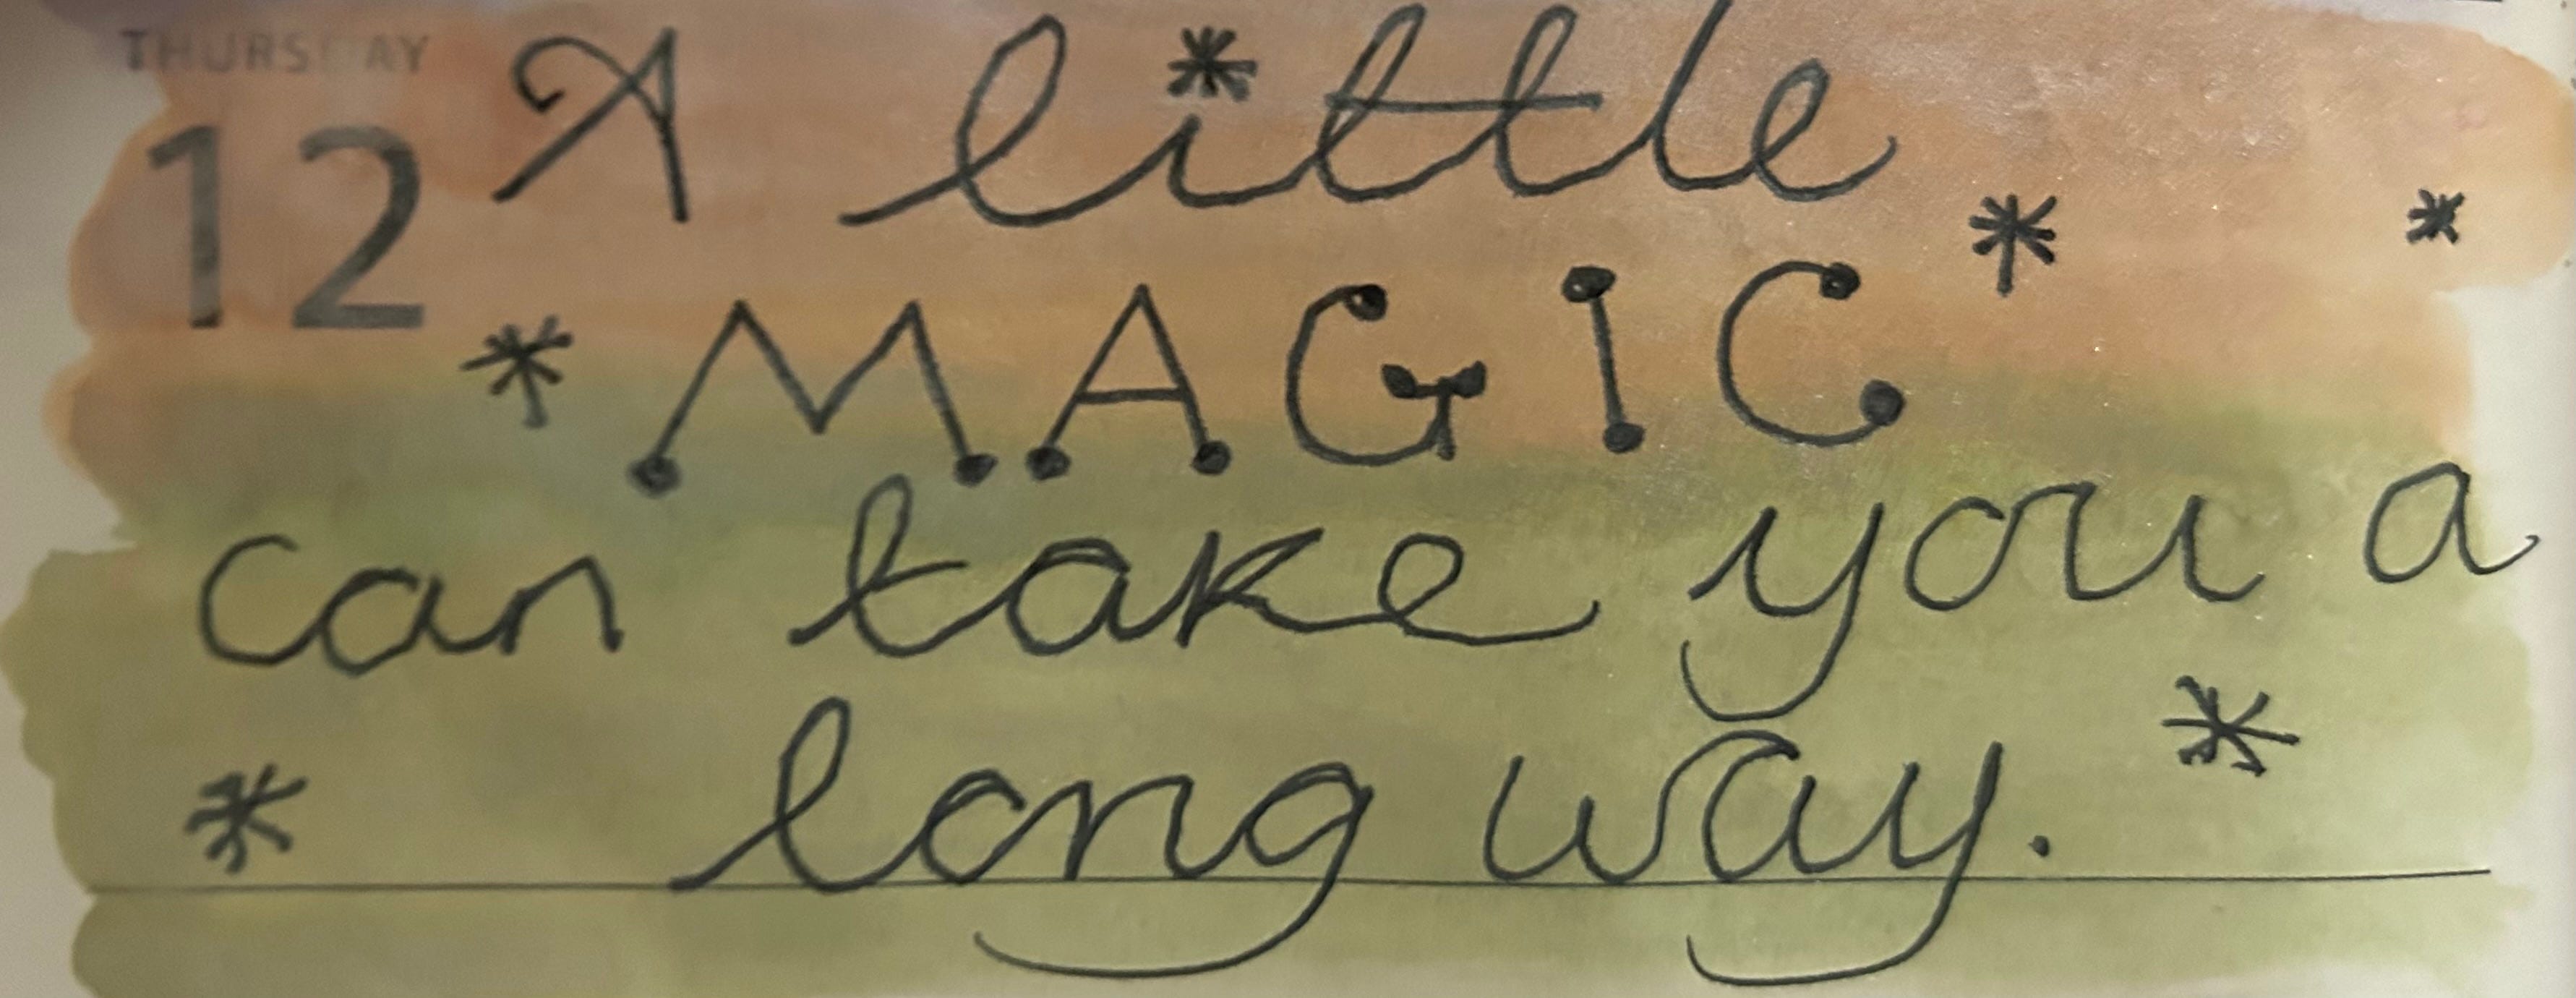 THURSDAY
12
A little
MAGIC
can take you a
long way.